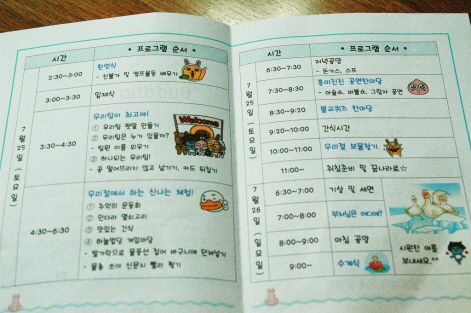 시간
* 프로그램 순서 *
7월 25일 (토요일)
2:30~3:00
환영식
- 찬불가 및 캠프율동 배우기
3:00~3:30
입재식
3:30~4:30
우리팀이 최고야!
① 우리팀 팻말 만들기
② 우리팀은 누가 있을까?
- 팀원 이름 외우기
③ 하나되는 우리팀!
- 공 떨어뜨리지 않고 넘기기, 카드 뒤집기
Welcome
4:30~6:30
우리절에서 하는 신나는 체험!
① 추억의 운동회
② 만다라 열쇠고리
③ 맛있는 간식
④ 하늘법당 게임마당
- 발가락으로 물풍선 집어 바구니에 던져넣기
- 물총 쏘아 신문지 빨리 찢기
시간
* 프로그램 순서 *
7월 25일 (토요일)
6:30~7:30
저녁공양
- 돈가스, 스프
7:30~8:30
흥미진진 공연한마당
- 마술쇼, 버블쇼, 그림자 공연
8:30~9:20
불교퀴즈 한마당
9:20~10:00
간식시간
10:00~11:00
우리절 보물찾기
11:00~
취침준비 및 꿈나라로☆
7월 26일 (일요일)
6:30~7:00
기상 및 세면
7:00~8:00
부처님은 어디에?
8:00~9:00
아침 공양
9:00~
수계식
시원한 여름
보내세요^^